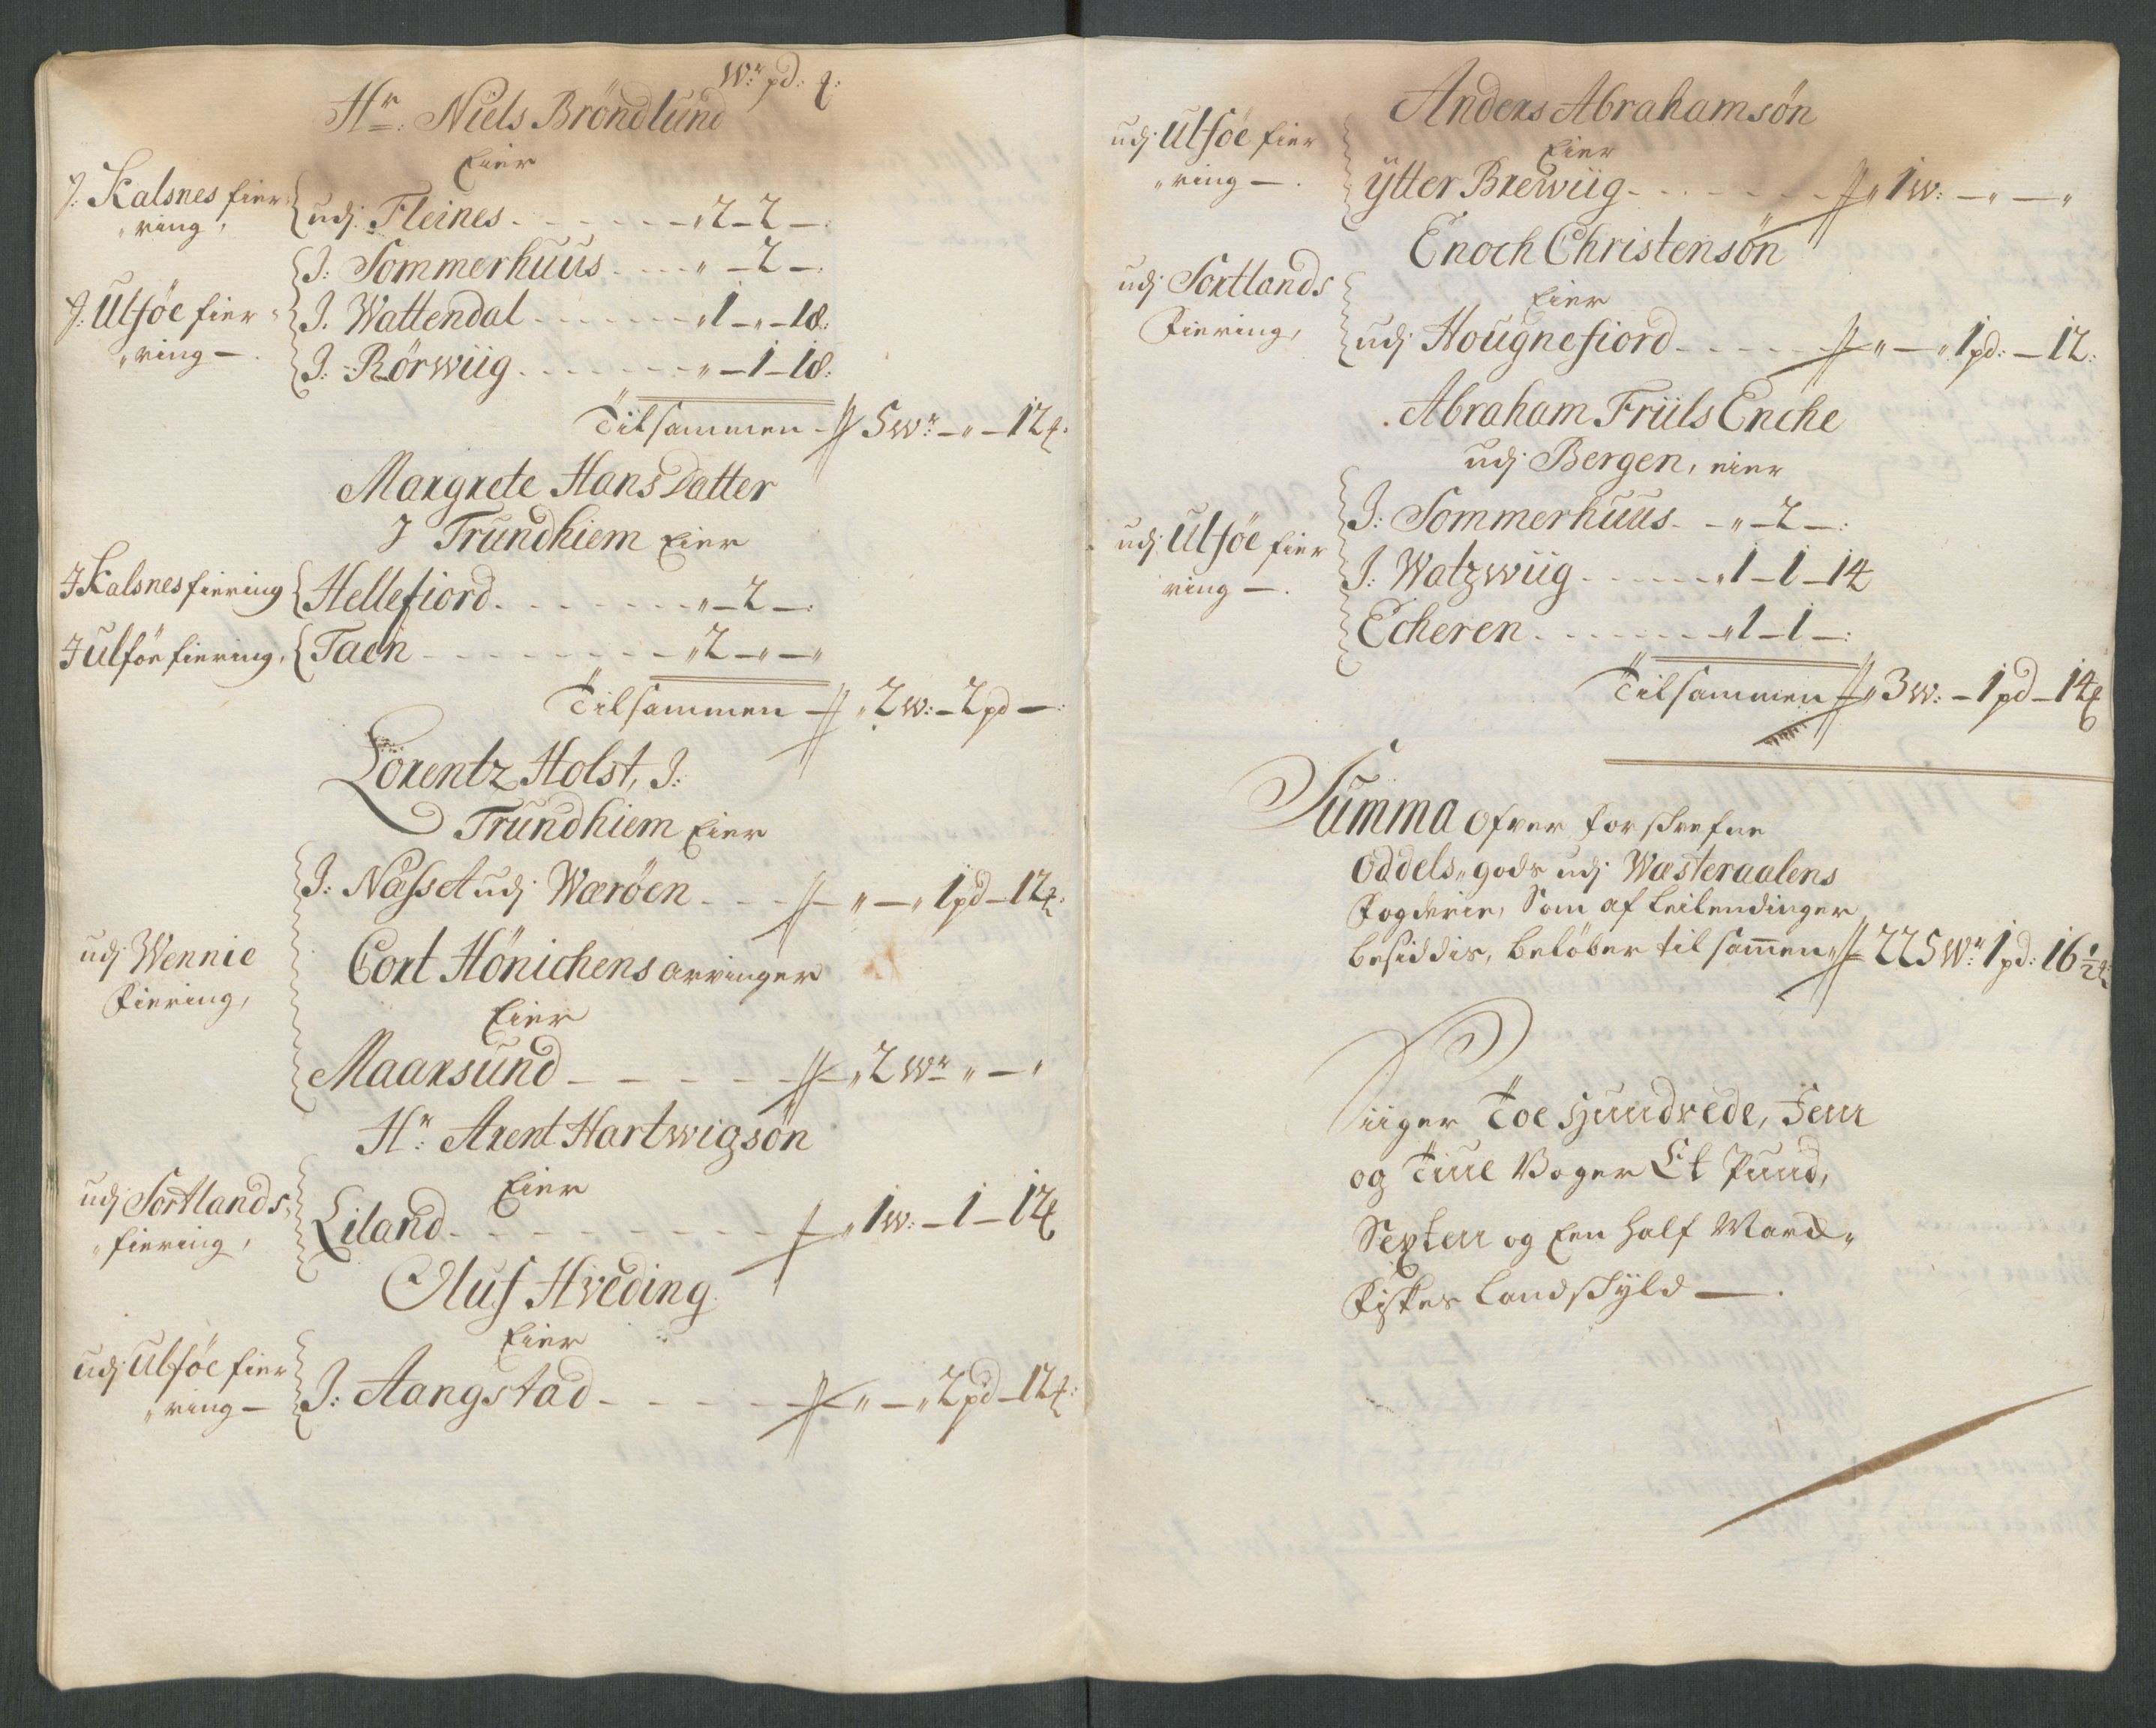 Wr: pd: ꝉ:
Hr: Niels Bröndlund
Eier
J: Skalsnes fier
ring, udj Fleines - - - - - „ 2 - 2 - :
J: Sommerhuus - - - „ - 2 - :
J: Ulföe fier
ring - J. Wattendal - - - - „ 1 - „ - 18:
J: Rörwiig - - - - - „ - 1 - 18:
Tilsammen - 5 Wr: - „ - 12 ꝉ:
Margrete Hans Datter
J Trundhiem Eier
J Skalsnes fiering Hellefiord - - - - - „ - 2 - :
J Ulföe fiering, Taen - - - - - „ 2 - „ - „
Tilsammen - „ 2 W: - 2 pd - :
Lorentz Holst, J:
Trundhiem Eier
J: Næsset udj Wæröen - - - „ - „ 1 pd - 12 ꝉ:
udj Wennie
Fiering,
Cort Hönichens arvinger
Eier
Maarsund - - - - - „ 2 Wr „ - „
Hr: Arent Hartwigsön
Eier
udj Sortlands
fiering, Eiland - - - - - „ 1 W: - 1 - 12 ꝉ
Oluf Hveding
Eier
udj Ulföe fier
ring - J: Aangstad - - - - „ - „ 2 pd - 12 ꝉ:
Anders Abrahamsön
Eier
udj Ulföe fier
ring - . ytter Brewiig - - - - - „ 1 W: - „ - „
Enoch Christensön
Eier
udj Sortlands
Fiering, udj Hougnefiord - - - - „ - „ 1 pd: - 12:
Abraham Friils Enche
udj Bergen, eier
J: Sommerhuus - - „ - 2 - :
udj Ulföe fier
ring - . J: Watzwiig - - - - „ 1 - 1 - 14
Echeren - - - - - „ 1 - 1 - :
Tilsammen „ 3 W: - 1 pd - 14 ꝉ
Summa ofver forschrefne
Oddels„gods udj Wæsteraalens
Fogderie, Som af Leilendinger
besiddis, beløber tilsam̅en „ 225 Wr: 1 pd: 16 1/2 ꝉ
Siiger Toe Hundrede, Fem
og Tiue Voger Et Pund,
Sexten og Een half Mark„
Fiskes Landschyld - .